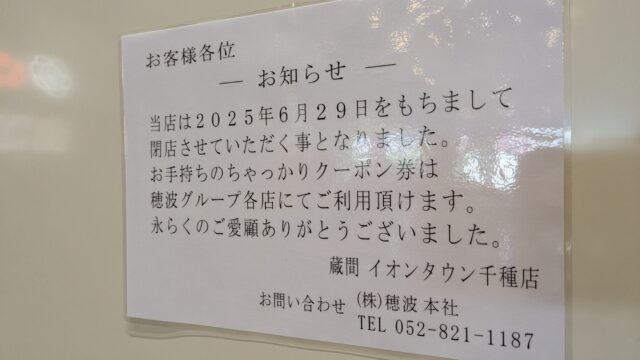 お客様各位
― お知らせ ―
当店は2025年6月29日をもちまして
閉店させていただく事となりました。
お手持ちのちゃっかりクーポン券は
穂波グループ各店にてご利用頂けます。
永らくのご愛顧ありがとうございました。
蔵間 イオンタウン千種店
お問い合わせ (株)穂波 本社
TEL 052-821-1187